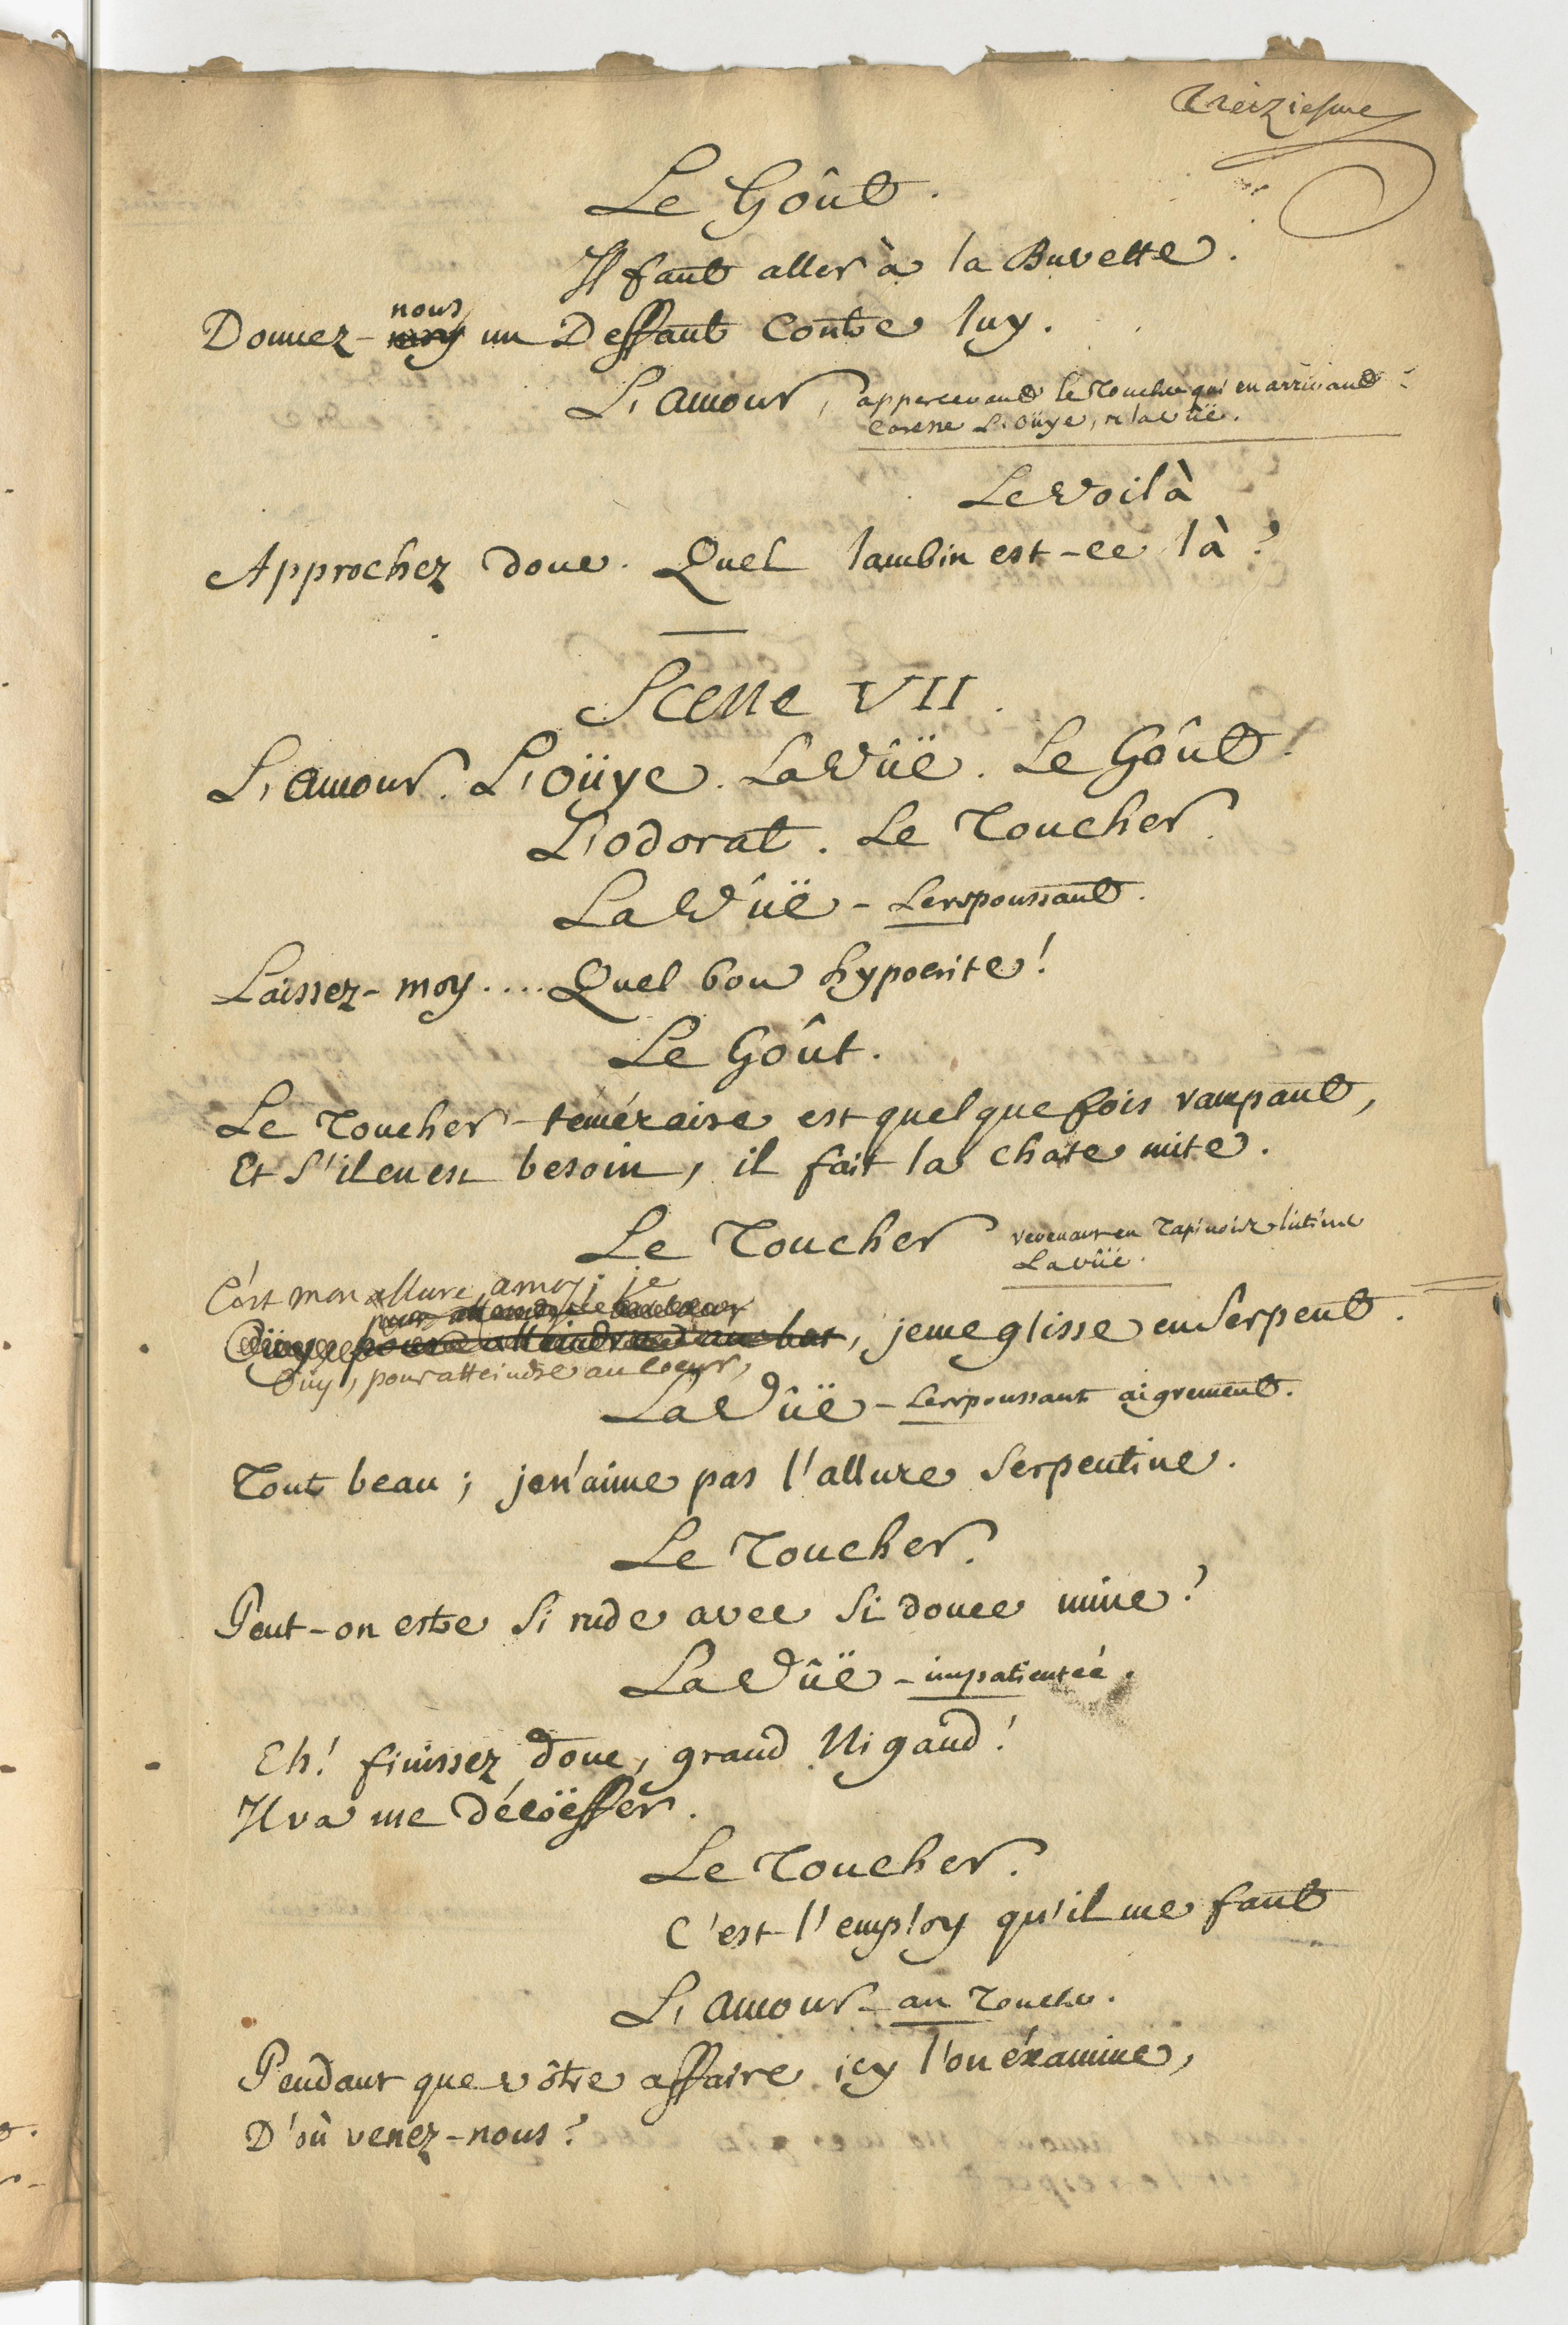 Treiziesme
Le Goût.
Il faut aller à la Buvette.
nous
Donnez-moy un Deffaut Contre luy.
L'amour, appercevant le Toucher qui en arrivant
Caresse L'oüye, et la vûë.
Le voilà
Approchez donc. Quel lambin est-ce là?
Scene VII.
L'amour. L'oüye. La Vûë. Le Goût.
L'odorat. Le Toucher.
La Vûë - Le repoussant.
Laissez-moy.... Quel bon hypocrite!
Le Goût.
Le Toucher téméraire est quelquefois rampant,
Et S'il en est besoin, il fait la chate mite.
Le Toucher revenant en Tapinois lutine
La vûë.
C'est mon allure, a moy; je
pour atteindre
pour atteindre, je me glisse en Serpent.
Ouy, pour atteindre au Coeur,
La Vûë - Le repoussant aigrement.
Tout beau; je n'aime pas l'allure Serpentine.
Le Toucher.
Peut-on estre Si rude avec Si douce mine?
La Vûë - impatientée.
Eh! finissez donc, grand Nigaud!
Il va me décoëffer.
Le Toucher.
C'est l'employ qu'il me faut
L'amour - au Toucher.
Pendant que vôtre affaire icy l'on éxamine,
D'où venez-nous?